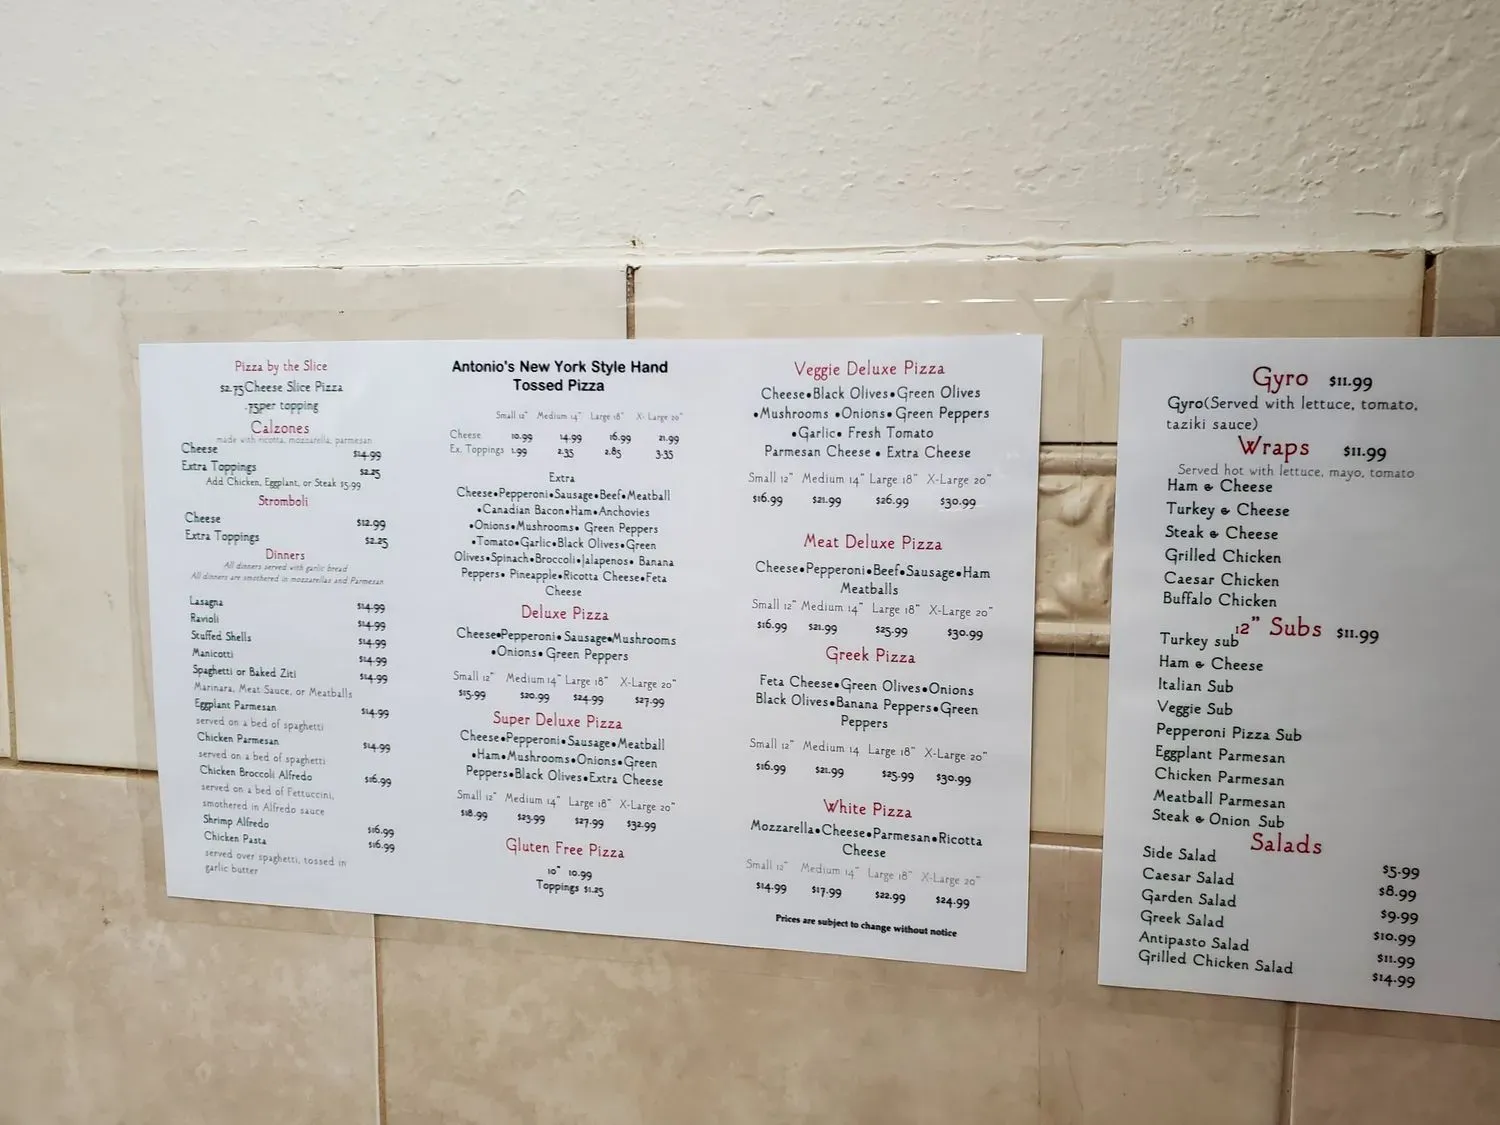 Pizza by the Slice
$2.75Cheese Slice Pizza
.75per topping
Calzones
made with ricotta, mozzarella, parmesan
Cheese $14.99
Extra Toppings $2.25
Add Chicken, Eggplant, or Steak $5.99
Stromboli
Cheese $12.99
Extra Toppings $2.25
Dinners
All dinners served with garlic bread
All dinners are smothered in mozzarellas and Parmesan
Lasagna $14.99
Ravioli $14.99
Stuffed Shells $14.99
Manicotti $14.99
Spaghetti or Baked Ziti $14.99
Marinara, Meat Sauce, or Meatballs
Eggplant Parmesan $14.99
served on a bed of spaghetti
Chicken Parmesan $14.99
served on a bed of spaghetti
Chicken Broccoli Alfredo $16.99
served on a bed of Fettuccini,
smothered in Alfredo sauce
Shrimp Alfredo $16.99
Chicken Pasta $16.99
served over spaghetti, tossed in
garlic butter
Antonio's New York Style Hand
Tossed Pizza
Small 12" Medium 14" Large 18" X-Large 20"
Cheese 10.99 14.99 16.99 21.99
Ex. Toppings 1.99 2.35 2.85 3.35
Extra
Cheese•Pepperoni•Sausage•Beef•Meatball
•Canadian Bacon•Ham•Anchovies
•Onions•Mushrooms• Green Peppers
•Tomato•Garlic•Black Olives•Green
Olives•Spinach•Broccoli•Jalapenos• Banana
Peppers• Pineapple•Ricotta Cheese•Feta
Cheese
Deluxe Pizza
Cheese•Pepperoni•Sausage•Mushrooms
•Onions• Green Peppers
Small 12" Medium 14" Large 18" X-Large 20"
$15.99 $20.99 $24.99 $27.99
Super Deluxe Pizza
Cheese•Pepperoni•Sausage•Meatball
•Ham•Mushrooms•Onions•Green
Peppers•Black Olives•Extra Cheese
Small 12" Medium 14" Large 18" X-Large 20"
$18.99 $23.99 $27.99 $32.99
Gluten Free Pizza
10" 10.99
Toppings $1.25
Veggie Deluxe Pizza
Cheese•Black Olives•Green Olives
•Mushrooms •Onions• Green Peppers
•Garlic• Fresh Tomato
Parmesan Cheese • Extra Cheese
Small 12" Medium 14" Large 18" X-Large 20"
$16.99 $21.99 $26.99 $30.99
Meat Deluxe Pizza
Cheese•Pepperoni•Beef•Sausage•Ham
Meatballs
Small 12" Medium 14" Large 18" X-Large 20"
$16.99 $21.99 $25.99 $30.99
Greek Pizza
Feta Cheese•Green Olives•Onions
Black Olives•Banana Peppers•Green
Peppers
Small 12" Medium 14 Large 18" X-Large 20"
$16.99 $21.99 $25.99 $30.99
White Pizza
Mozzarella•Cheese•Parmesan•Ricotta
Cheese
Small 12" Medium 14" Large 18" X-Large 20"
$14.99 $17.99 $22.99 $24.99
Prices are subject to change without notice
Gyro $11.99
Gyro(Served with lettuce, tomato,
taziki sauce)
Wraps $11.99
Served hot with lettuce, mayo, tomato
Ham & Cheese
Turkey & Cheese
Steak & Cheese
Grilled Chicken
Caesar Chicken
Buffalo Chicken
12" Subs $11.99
Turkey sub
Ham & Cheese
Italian Sub
Veggie Sub
Pepperoni Pizza Sub
Eggplant Parmesan
Chicken Parmesan
Meatball Parmesan
Steak & Onion Sub
Salads
Side Salad $5.99
Caesar Salad $8.99
Garden Salad $9.99
Greek Salad $10.99
Antipasto Salad $11.99
Grilled Chicken Salad $14.99